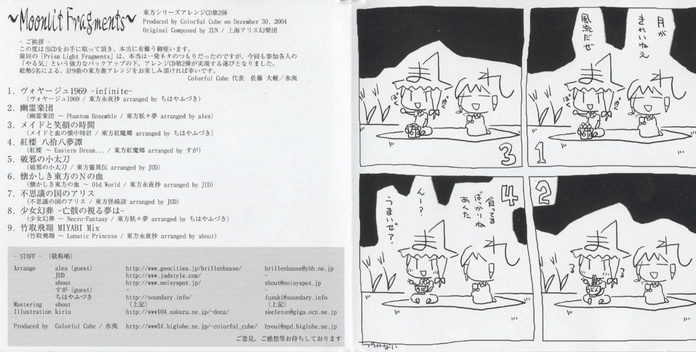 ～Moonlit Fragments～
東方シリーズアレンジCD第2弾
Produced by Colorful Cube on December 30, 2004
Original Composed by ZUN / 上海アリス幻樂団
- ご挨拶 -
この度は当CDをお手に取って頂き、本当に有難う御座います。
前回の「Prism Light Fragments」は、本当は一発ネタのつもりだったのですが、今回も参加各人の
「やる気」という強力なバックアップの下、アレンジCD第2弾が実現する運びとなりました。
総勢5名による、計9曲の東方曲アレンジをお楽しみ頂ければ幸いです。
Colorful Cube 代表 佐藤 大輔／氷夷
1. ヴォヤージュ1969 -infinite-
(ヴォヤージュ1969 / 東方永夜抄 arranged by ちはやふづき)
2. 幽霊楽団
(幽霊楽団 ～ Phantom Ensemble / 東方妖々夢 arranged by alex)
3. メイドと笑顔の時間
(メイドと血の懐中時計 / 東方紅魔郷 arranged by ちはやふづき)
4. 紅楼 八拾八夢譚
(紅楼 ～ Eastern Dream... / 東方紅魔郷 arranged by すが)
5. 破邪の小太刀
(破邪の小太刀 / 東方靈異伝 arranged by JUD)
6. 懐かしき東方のNの血
(懐かしき東方の血 ～ Old World / 東方永夜抄 arranged by JUD)
7. 不思議の国のアリス
(不思議の国のアリス / 東方怪綺談 arranged by JUD)
8. 少女幻葬 -亡骸の視る夢は-
(少女幻葬 ～ Necro-Fantasy / 東方妖々夢 arranged by ちはやふづき)
9. 竹取飛翔 MIYABI Mix
(竹取飛翔 ～ Lunatic Princess / 東方永夜抄 arranged by shout)
- STAFF - (敬称略)
Arrange alex (guest) http://www.geocities.jp/brillenbasse/ brillenbasse@ybb.ne.jp
JUD http://www.judstyle.com/ -
shout http://www.noisyspot.jp/ shout@noisyspot.jp
すが (guest) - -
ちはやふづき http://soundary.info/ fuzuki@soundary.info
Mastering shout (上記) (上記)
Illustration kirix http://www104.sakura.ne.jp/~dona/ skeleton@giga.ocn.ne.jp
Produced by Colorful Cube / 氷夷 http://www5f.biglobe.ne.jp/~colorful_cube/ hyoui@mpd.biglobe.ne.jp
ご意見、ご感想等お待ちしております
月が
きれいねぇ
風流だぜ
まれ
1
まれ
2
まれ
3
4
食ってる
ばっかりね
あんた
んー？
うまいぜ？
まれ